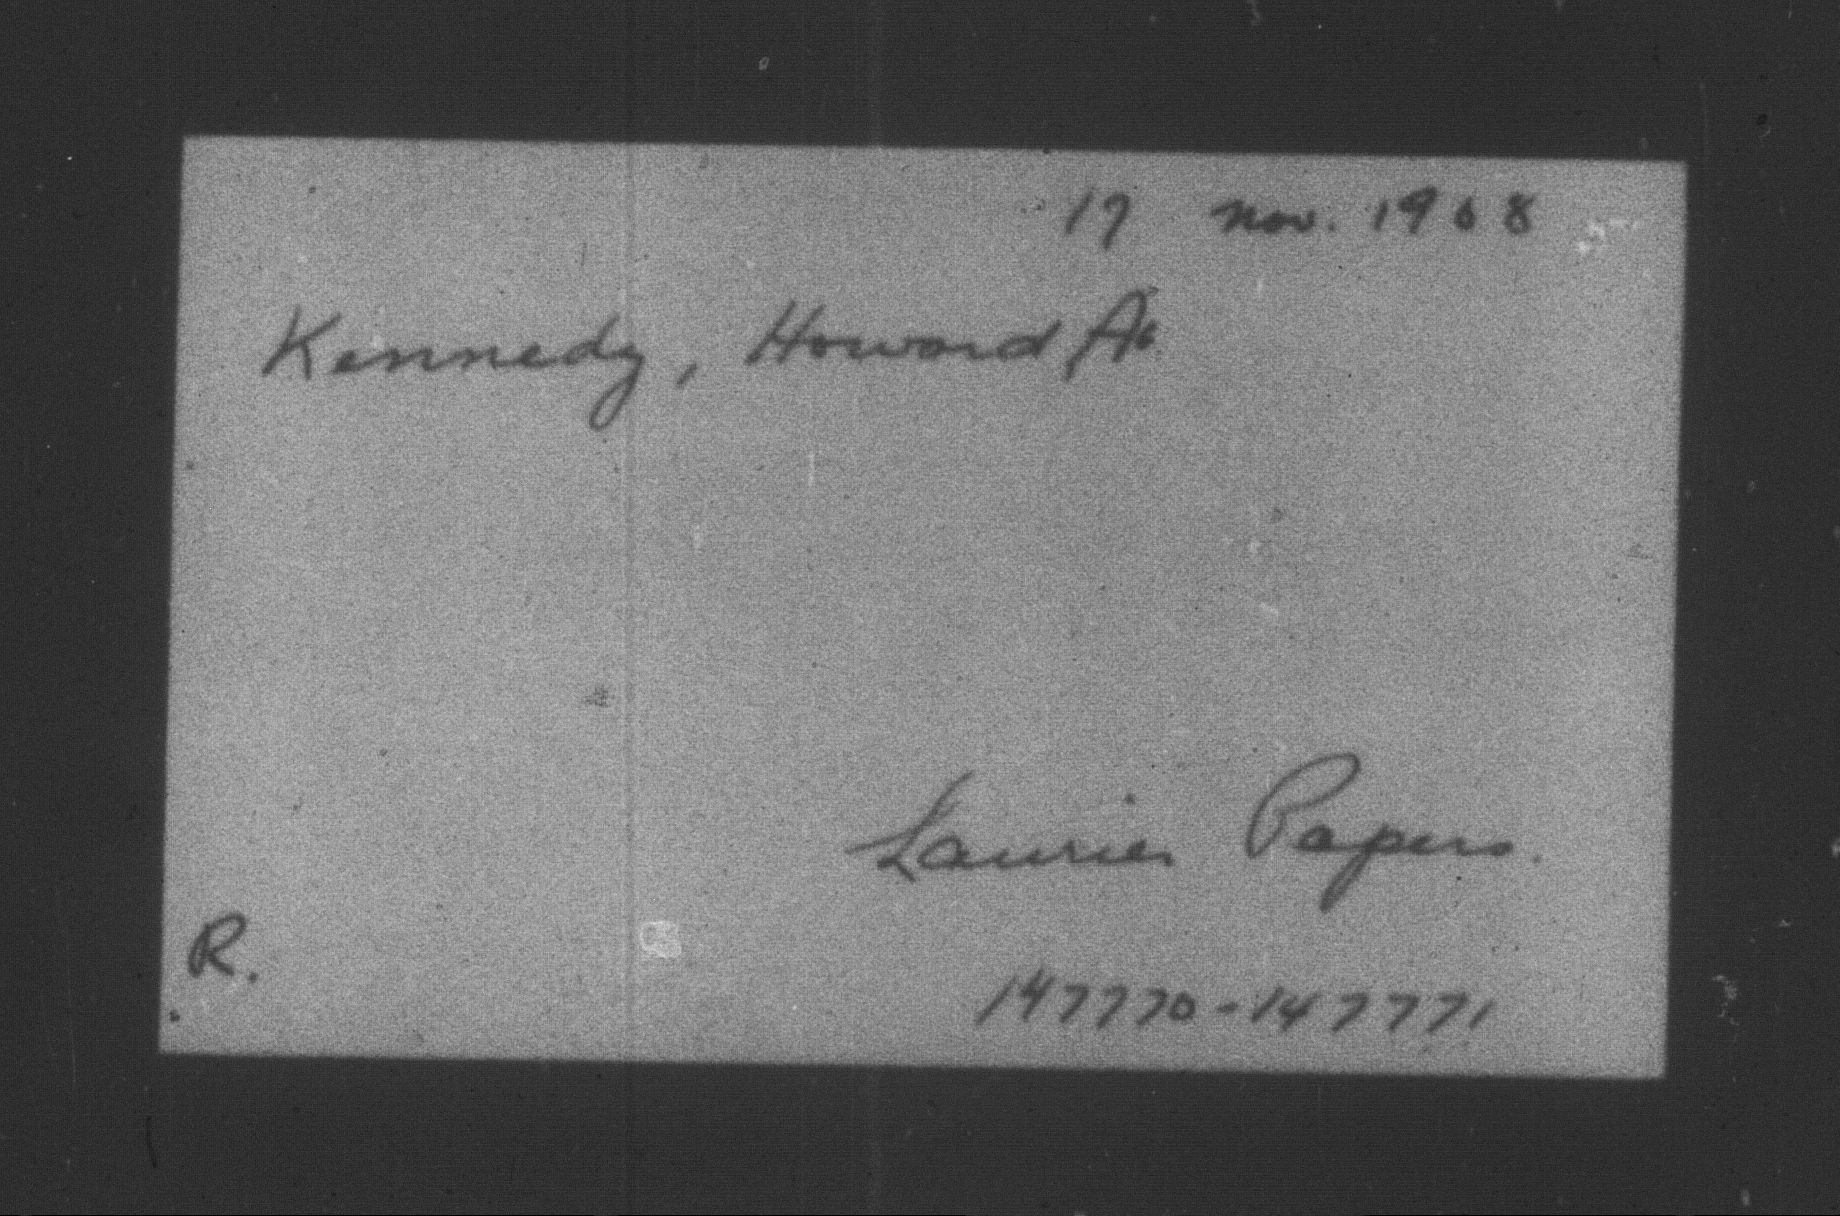 17 Nov. 1908
Kennedy, Howard A.
Laurier Papers.
R.
147770-147771